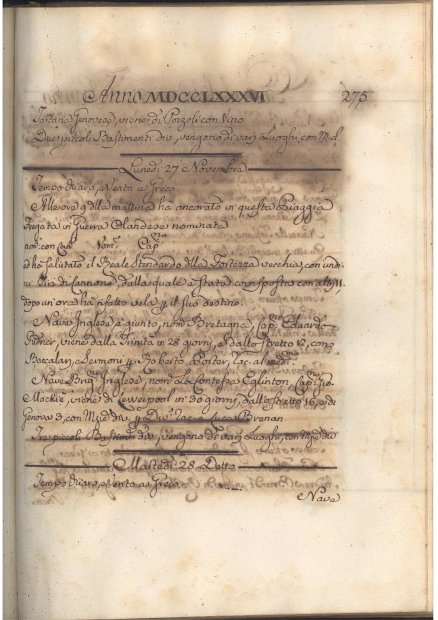 Anno MDCCLXXXVI 275
Tartana Genovese, viene di Pozzoli con Vino
Due piccoli Bastimenti div., vengono di varj Luoghi con
Lunedì 27 Novembre
Tempo chiaro, e Vento a Greco
Alle ore 9 della mattina ha ancorato in questa Piaggia
Fregata in Guerra Olandese nominata
con Nom. Cap.
ed ha salutato il Reale Stendardo della Fortezza vecchia, con
tiri di Cannone, dalla quale è stata corrisposta con altri 11.
dopo un'ora ha rifatto vela p. il suo destino
Nave Inglese è giunto, nom. Bretagna, Cap. Eduardo
viene dalla Trinita in 28 giorni, e dallo stretto 12, con
Baccalari, e Sermoni p. Roberto Porter,
Nave Inglese, nom. La Contessa Eglinton, Cap.
Mackie, viene di Liverpool in 30 giorni, dallo stretto 16, e di
Genova 3, con div. p. Div. Luca Brenan
Tre piccoli Bastimenti div., vengono di varj Luoghi, con div.
Martedì 28 Detto
Tempo chiaro, e Vento a Greco
Nave